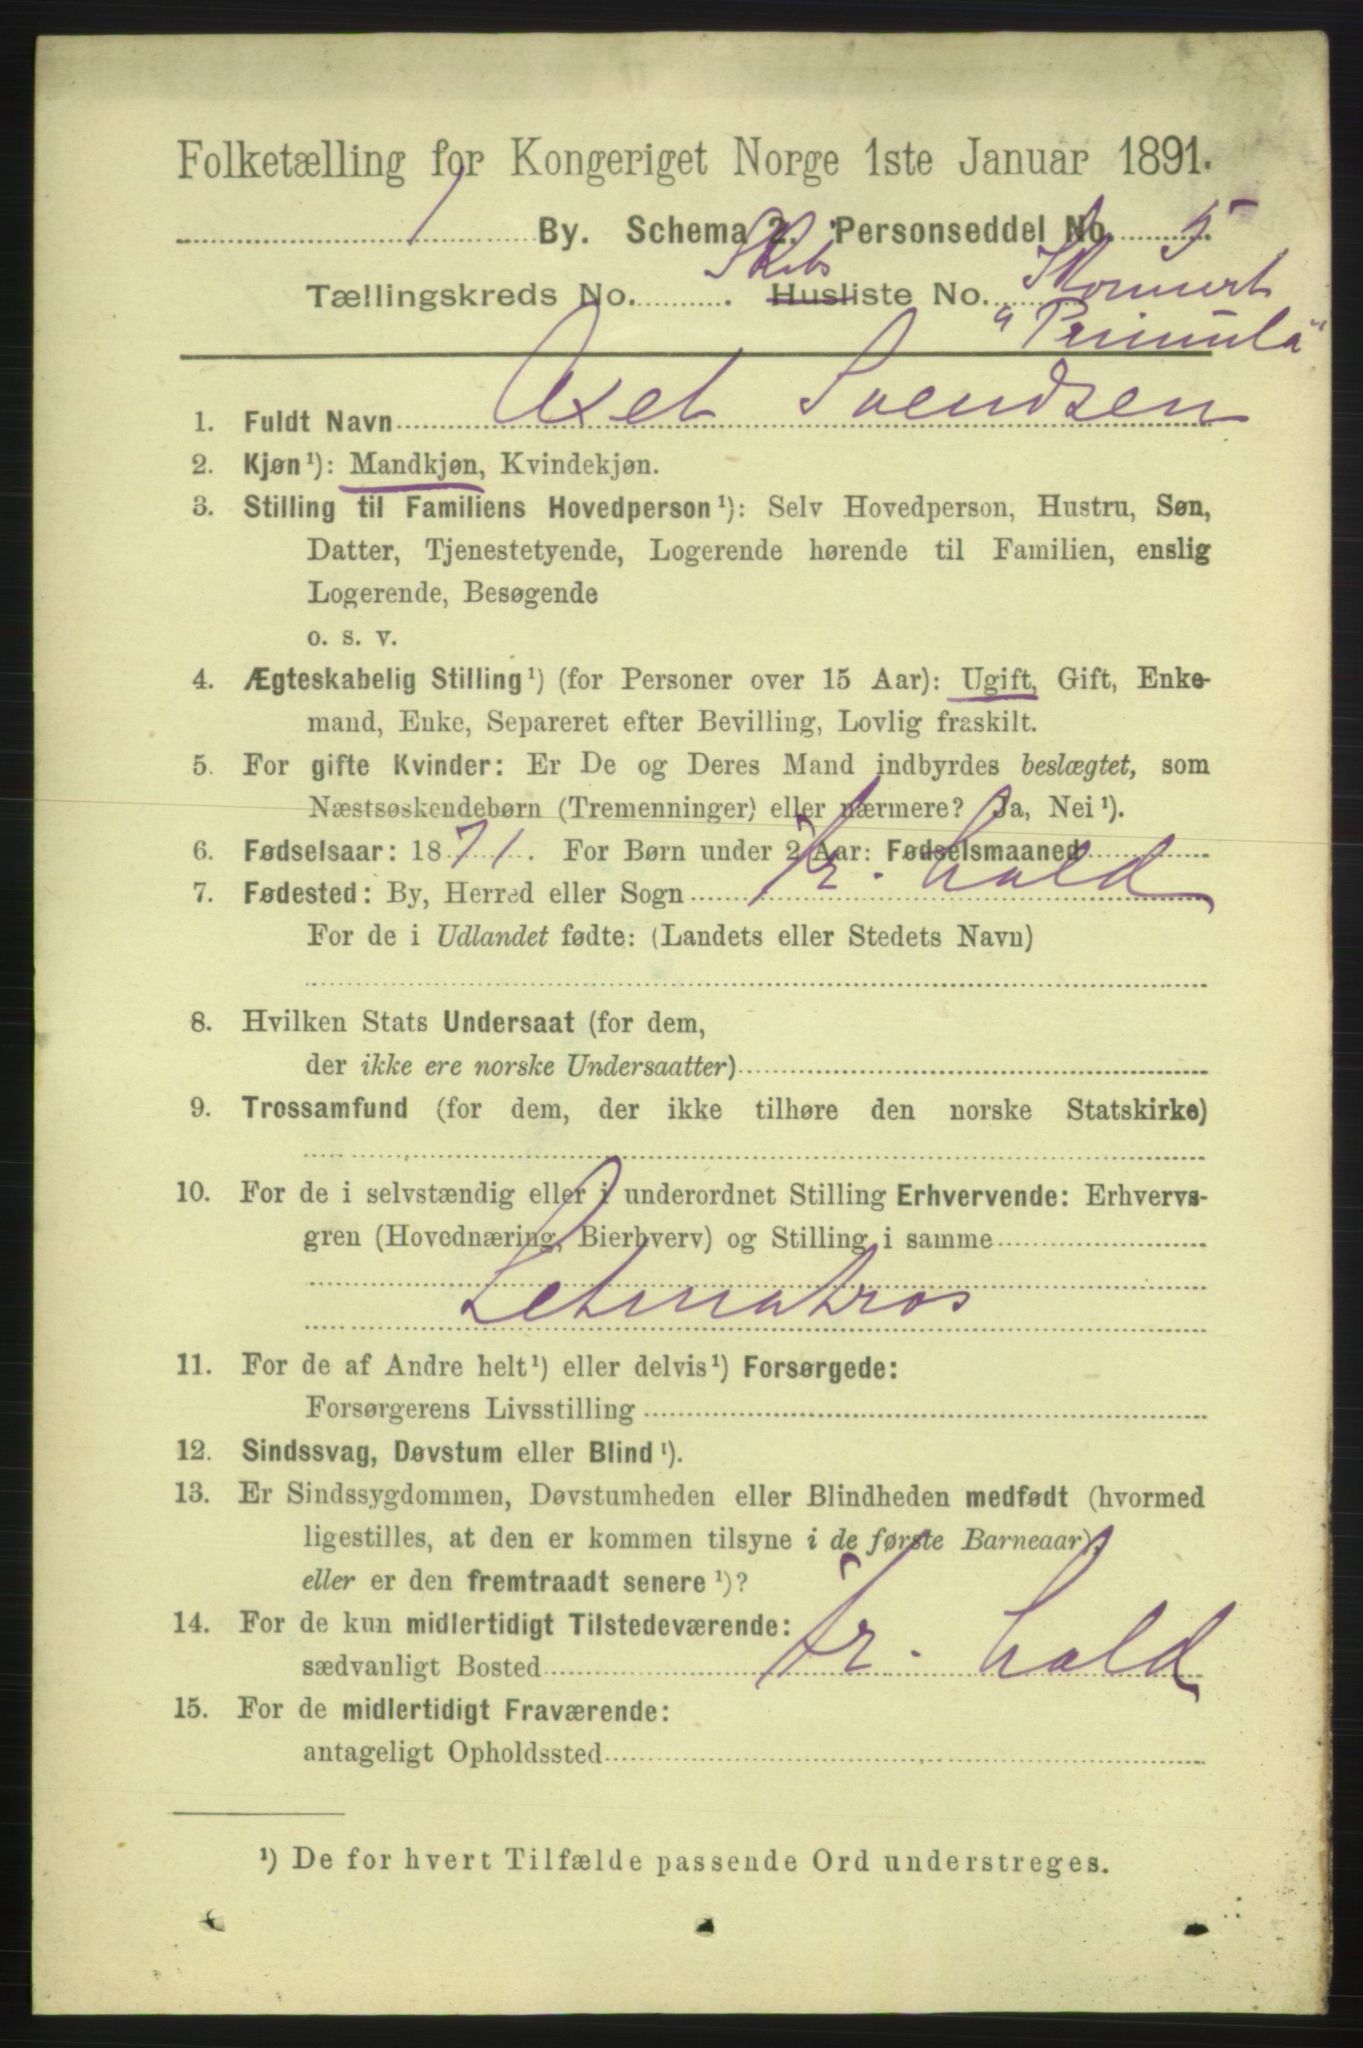 Folketælling for Kongeriget Norge 1ste Januar 1891.
By. Schema 2. Personseddel No. 5
Skibs
Tællingskreds No. Husliste No. Skonnert
"Primula"
1. Fuldt Navn Axel Svendsen
2. Kjøn¹): Mandkjøn, Kvindekjøn.
3. Stilling til Familiens Hovedperson¹): Selv Hovedperson, Hustru, Søn,
Datter, Tjenestetyende, Logerende hørende til Familien, enslig
Logerende, Besøgende
o. s. v.
4. Ægteskabelig Stilling¹) (for Personer over 15 Aar): Ugift, Gift, Enke-
mand, Enke, Separeret efter Bevilling, Lovlig fraskilt.
5. For gifte Kvinder: Er De og Deres Mand indbyrdes beslægtet, som
Næstsøskendebørn (Tremenninger) eller nærmere? Ja, Nei¹).
6. Fødselsaar: 1871. For Børn under 2 Aar: Fødselsmaaned
7. Fødested: By, Herred eller Sogn Fr. hald
For de i Udlandet fødte: (Landets eller Stedets Navn)
8. Hvilken Stats Undersaat (for dem,
der ikke ere norske Undersaatter)
9. Trossamfund (for dem, der ikke tilhøre den norske Statskirke)
10. For de i selvstændig eller i underordnet Stilling Erhvervende: Erhvervs-
gren (Hovednæring, Bierhverv) og Stilling i samme
Letmatros
11. For de af Andre helt¹) eller delvis¹) Forsørgede:
Forsørgerens Livsstilling
12. Sindssvag, Døvstum eller Blind¹).
13. Er Sindssygdommen, Døvstumheden eller Blindheden medfødt (hvormed
ligestilles, at den er kommen tilsyne i de første Barneaar),
eller er den fremtraadt senere¹)?
14. For de kun midlertidigt Tilstedeværende:
sædvanligt Bosted Fr. hald
15. For de midlertidigt Fraværende:
antageligt Opholdssted
¹) De for hvert Tilfælde passende Ord understreges.